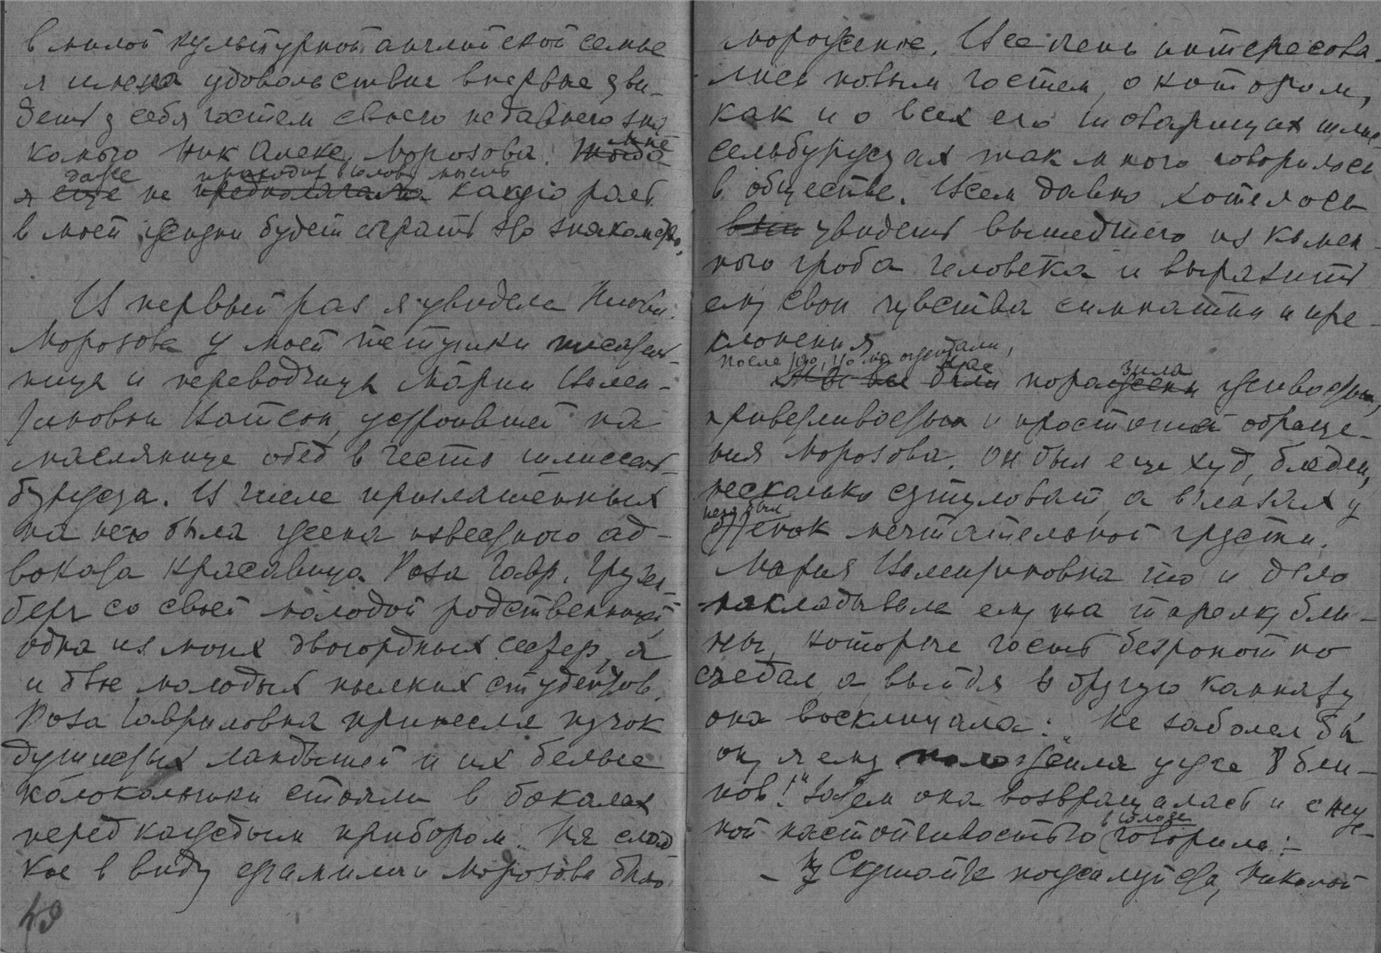 в милой культурной английской семье
я имела удовольствие впервые уви-
деть у себя гостем своего недавнего зна
комого Ник Алекс. Морозова. Тогда мне
я еще даже не предполагала приходило в голову мысль какую роль
в моей жизни будет играть это знакомство.
И первый раз я увидела Никол.
Морозова у моей тетушки писатель-
ницы и переводчицы Марии Вален-
тиновны Ватсон, устроившей на
маслянице обед в честь шлиссель-
буржца. В числе приглашенных
на нею была жена известного ад-
воката красавица Роза Гавр. Грузен-
берг со своей молодой родственницей,
одна из моих двоюродных сестер, я
и двое молодых пылких студентов.
Роза Гавриловна принесла пучок
душистых ландышей и их белые
колокольчики стояли в бокалах
перед каждым прибором. На слад-
кое в виду фамилии Морозова было
49
мороженое. Все очень интересова-
лись новым гостем, о котором,
как и о всех его товарищах шлис-
сельбуржцах так много говорилось
в обществе. Всем давно хотелось
увидеть вышедшего из камен-
ного гроба человека и выразить
ему свои чувства симпатии и пре-
клонения.
После того, что мы ожидали,
Мы все были нас поражены зила живостью,
приветливостью и простотой обраще-
ния Морозова. Он был еще худ, бледен,
несколько сутуловат, а в глазах у
оттенок печальный мечтательной грусти.
Мария Валентиновна то и дело
накладывала ему на тарелку бли-
ны, которые гость безропотно
съедал, а выйдя в другую комнату,
она восклицала: „Не заболел бы
он, я ему положила уже 8 бли-
нов!" Затем она возвращалась и с неж-
ной настойчивостью в голосе говорила:
– Скушайте пожалуйста, Николай